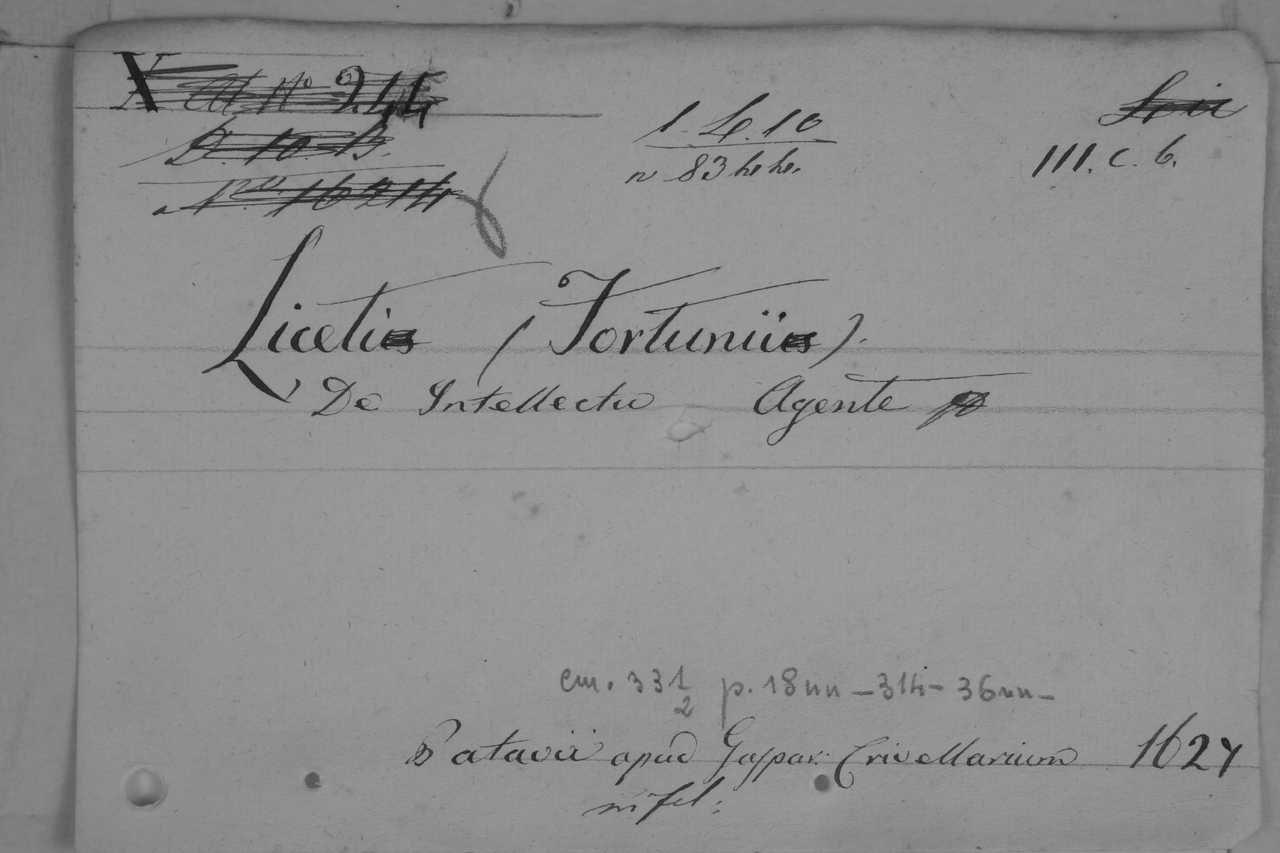 X Att Nº 244
D. 10. B.
Nº 16214
1. L. 10
n 83 hehe.
III. C. 6.
Liceti (Fortunii).
De Intellectu Agente
cm. 33 1/2 p. 18 nn - 314 - 36 nn -
Patavii apud Gaspar: Crivellarium 1627
in fol: